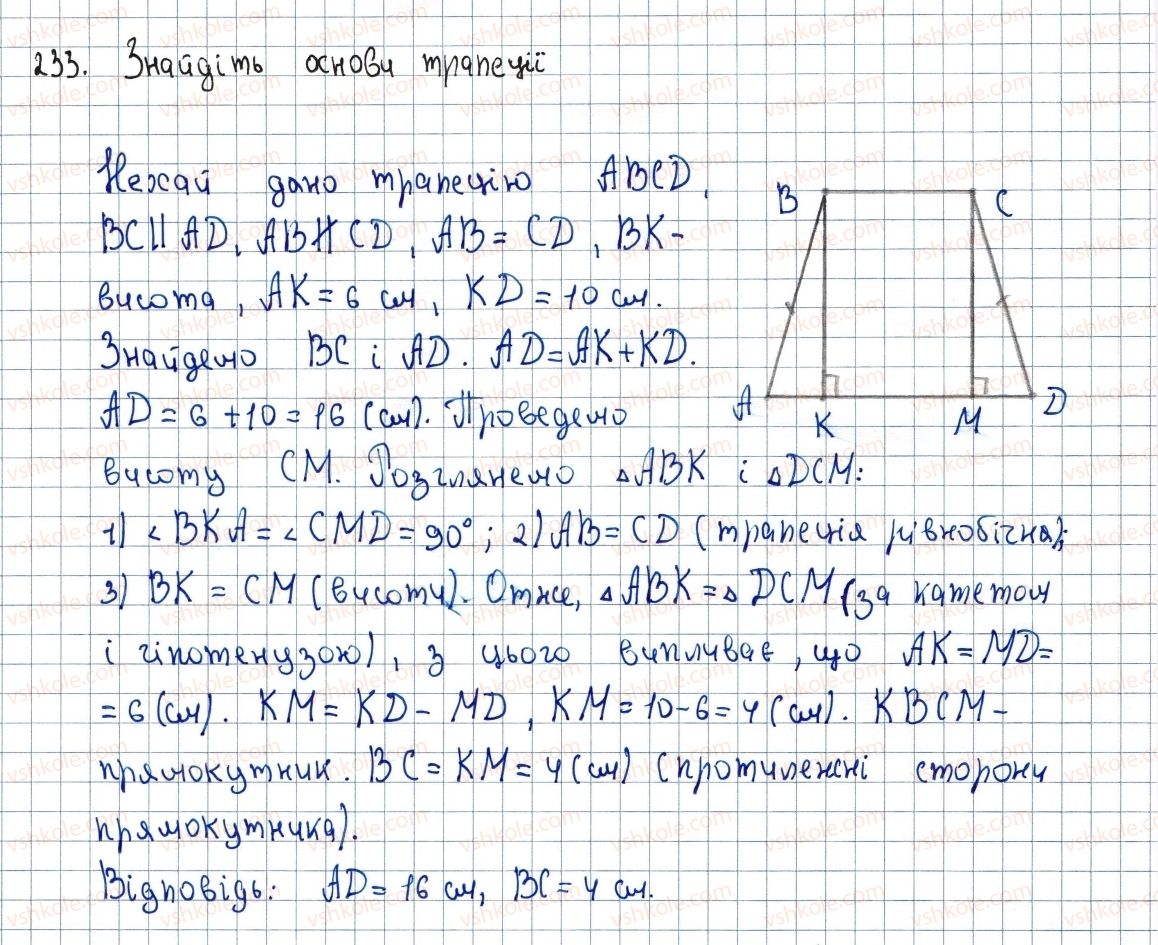 233. Знайдіть основи трапеції
Нехай дано трапецію ABCD,
BC || AD, AB ∦ CD, AB = CD, BK -
висота, AK = 6 см, KD = 10 см.
Знайдемо BC і AD. AD = AK + KD.
AD = 6 + 10 = 16 (см). Проведемо
висоту CM. Розглянемо ▵ABK і ▵DCM:
1) ∠BKA = ∠CMD = 90°; 2) AB = CD (трапеція рівнобічна);
3) BK = CM (висоти). Отже, ▵ABK = ▵DCM (за катетом
і гіпотенузою), з цього випливає, що AK = MD =
= 6 (см). KM = KD - MD, KM = 10 - 6 = 4 (см). KBCM -
прямокутник. BC = KM = 4 (см) (протилежні сторони
прямокутника).
Відповідь: AD = 16 см, BC = 4 см.
B C
A K M D
vshkole.com